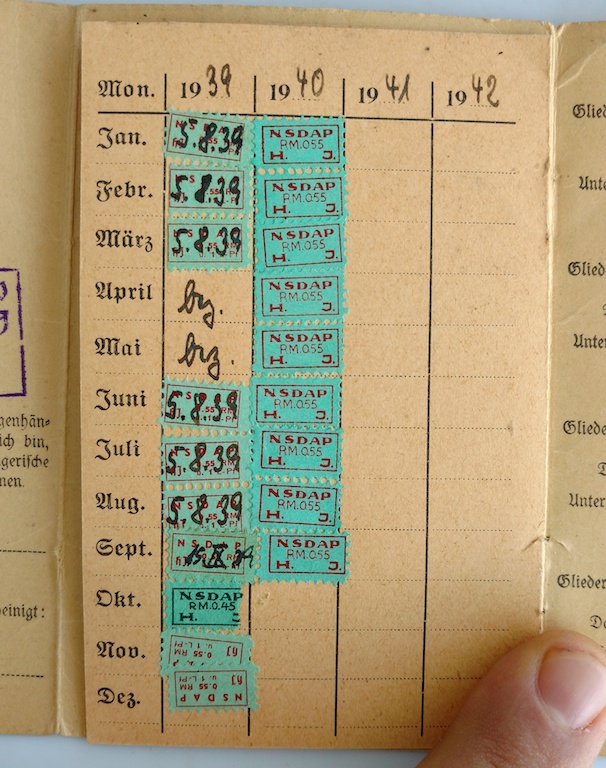 Mon. 1939 1940 1941 1942
Jan. 5.8.39 NSDAP RM.0.55 H. J.
Febr. 5.8.39 NSDAP RM.0.55 H. J.
März 5.8.39 NSDAP RM.0.55 H. J.
April bz. NSDAP RM.0.55 H. J.
Mai bz. NSDAP RM.0.55 H. J.
Juni 5.8.39 NSDAP RM.0.55 H. J.
Juli 5.8.39 NSDAP RM.0.55 H. J.
Aug. 5.8.39 NSDAP RM.0.55 H. J.
Sept. NSDAP NSDAP RM.0.55 H. J.
Okt. NSDAP RM.0.45 H. J
Nov. HJ 0.55 RM u. 1 L.-Pf
Dez. HJ 0.55 RM u. 1 L.-Pf NSDAP
ich bin,
Glied
Unte
Glied
Unter
Glied
Unter
Glieder